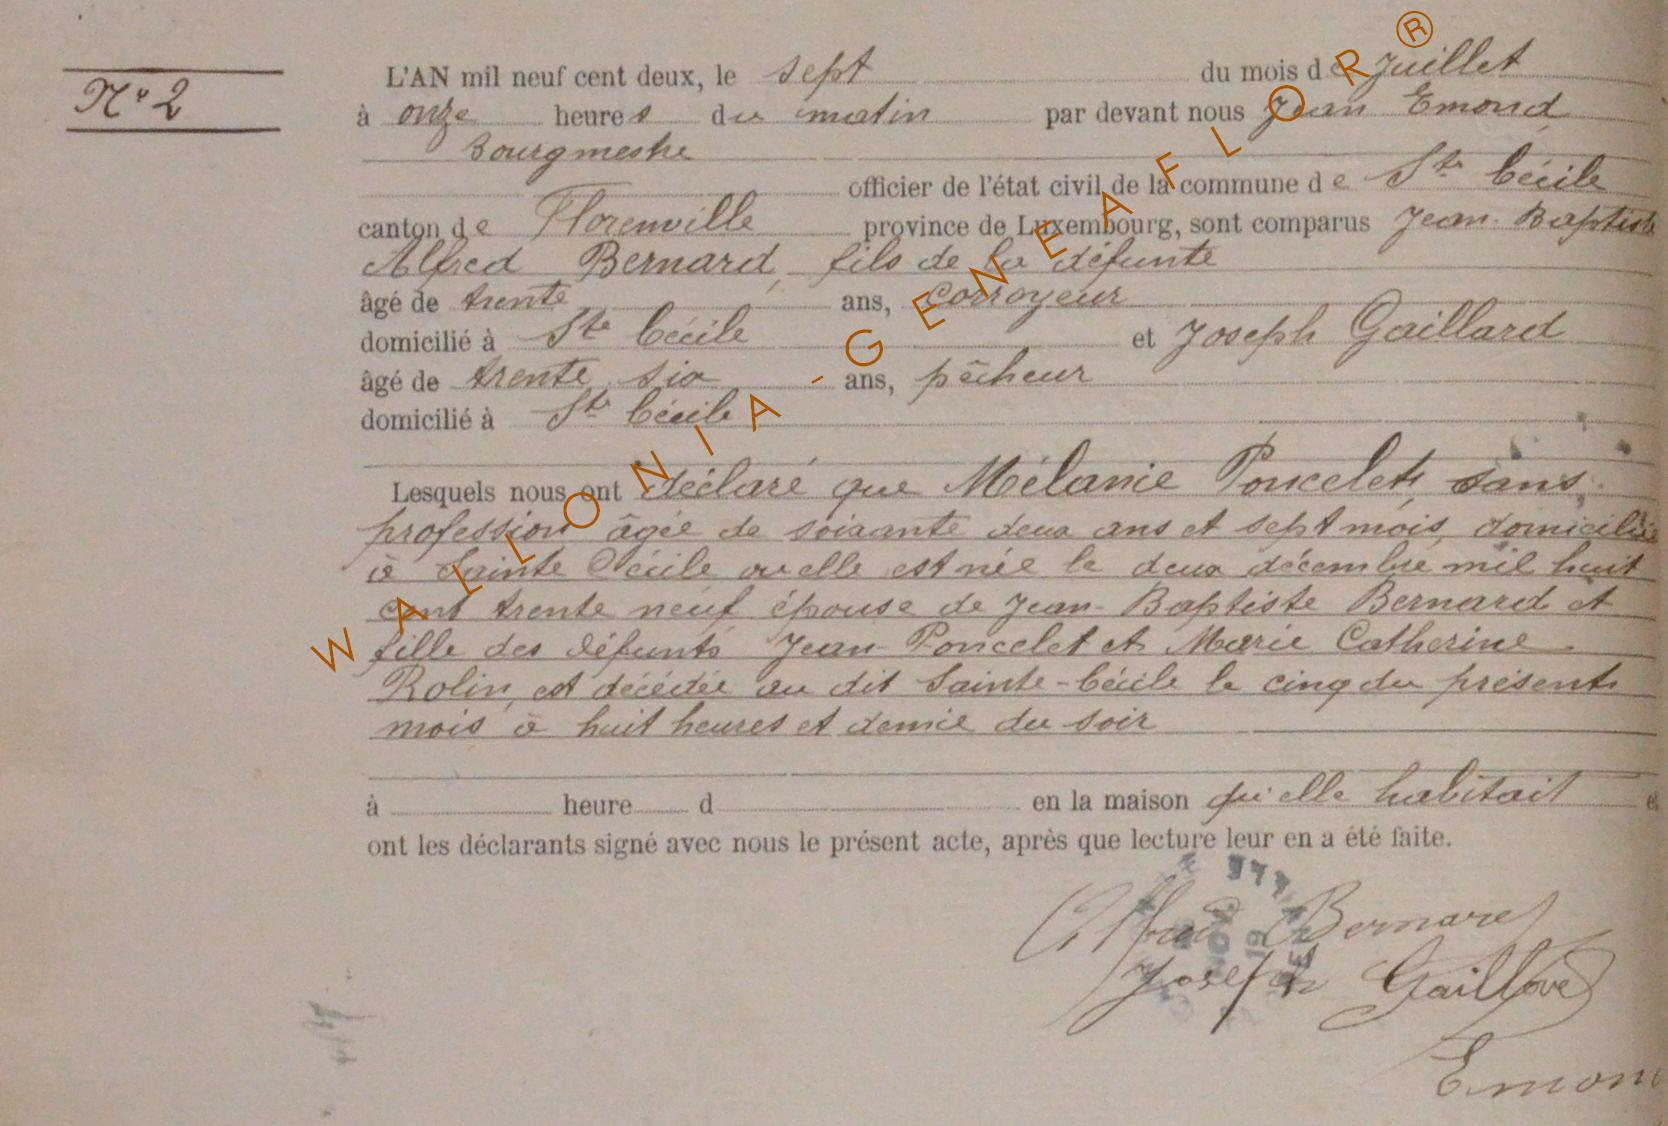 N° 2
L'AN mil neuf cent deux, le sept du mois de Juillet
à onze heures du matin par devant nous Jean Emond,
Bourgmestre
officier de l'état civil de la commune de Ste Cécile
canton de Florenville province de Luxembourg, sont comparus Jean-Baptiste
Alfred Bernard, fils de la défunte
âgé de trente ans, corroyeur
domicilié à Ste Cécile et Joseph Gaillard
âgé de trente six ans, pêcheur
domicilié à Ste Cécile
Lesquels nous ont déclaré que Mélanie Poncelet, sans
profession âgée de soixante deux ans et sept mois, domiciliée
à Sainte Cécile ou elle est née le deux décembre mil huit
cent trente neuf épouse de Jean-Baptiste Bernard et
fille des défunts Jean Poncelet et Marie Catherine
Rolin, est décédée au dit Sainte-Cécile le cinq du présent
mois à huit heures et demie du soir
à heure d en la maison qu'elle habitait et
ont les déclarants signé avec nous le présent acte, après que lecture leur en a été faite.
Alfred Bernard
Joseph Gaillard
Emon
WALLONIA-GENEAFLOR®